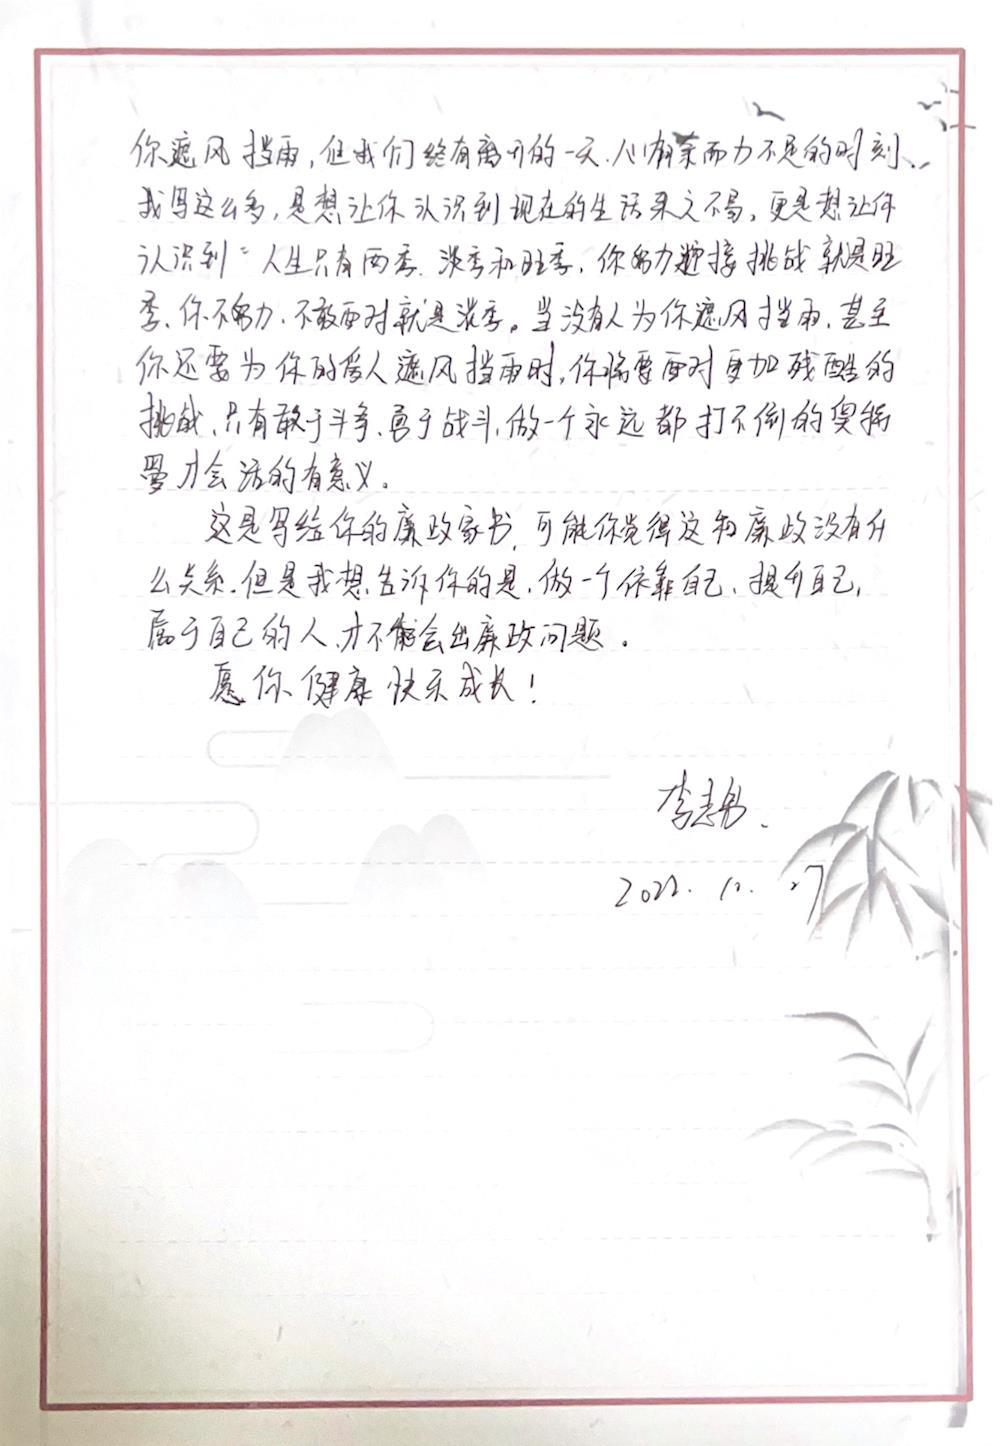 你遮风挡雨,但我们终有离开的一天.心有余而力不足的时刻、
我写这么多,是想让你认识到现在的生活来之不易,更是想让你
认识到"人生只有两季.淡季和旺季,你努力迎接挑战就是旺
季、你不努力.不敢面对就是淡季。当没有人为你遮风挡雨,甚至
你还要为你的爱人遮风挡雨时,你将要面对更加残酷的
挑战、只有敢于斗争、勇于战斗,做一个永远都打不倒的奥特
曼才会活的有意义。
这是写给你的廉政家书,可能你觉得这和廉政没有什
么关系.但是我想告诉你的是,做一个依靠自己、提升自己,
属于自己的人、才不会出廉政问题。
愿你健康快乐成长!
李志
2022.10.27